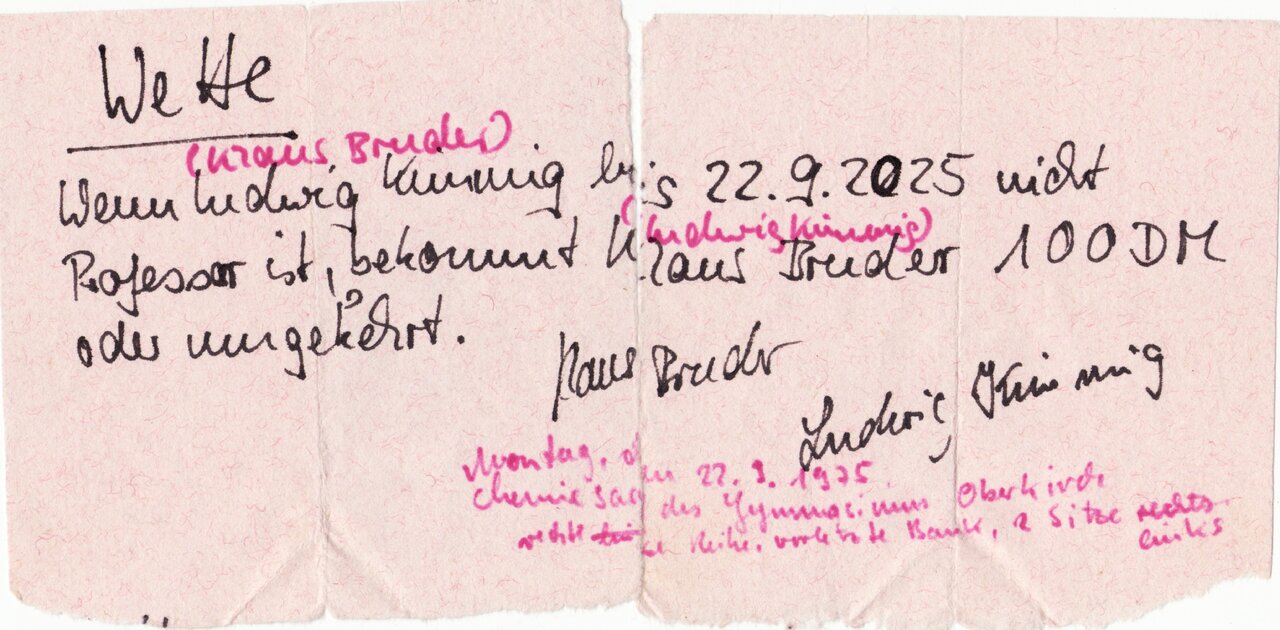 Wette
(Klaus Bruder)
Wenn Ludwig Kimmig bis 22.9.2025 nicht
(Ludwig Kimmig)
Professor ist, bekommt Klaus Bruder 100DM
oder umgekehrt.
Klaus Bruder
Ludwig Kimmig
Montag, den 22.9.1975
Chemiesaal des Gymnasiums Oberkirch
rechte Reihe, vorletzte Bank, 2 Sitze rechts
links